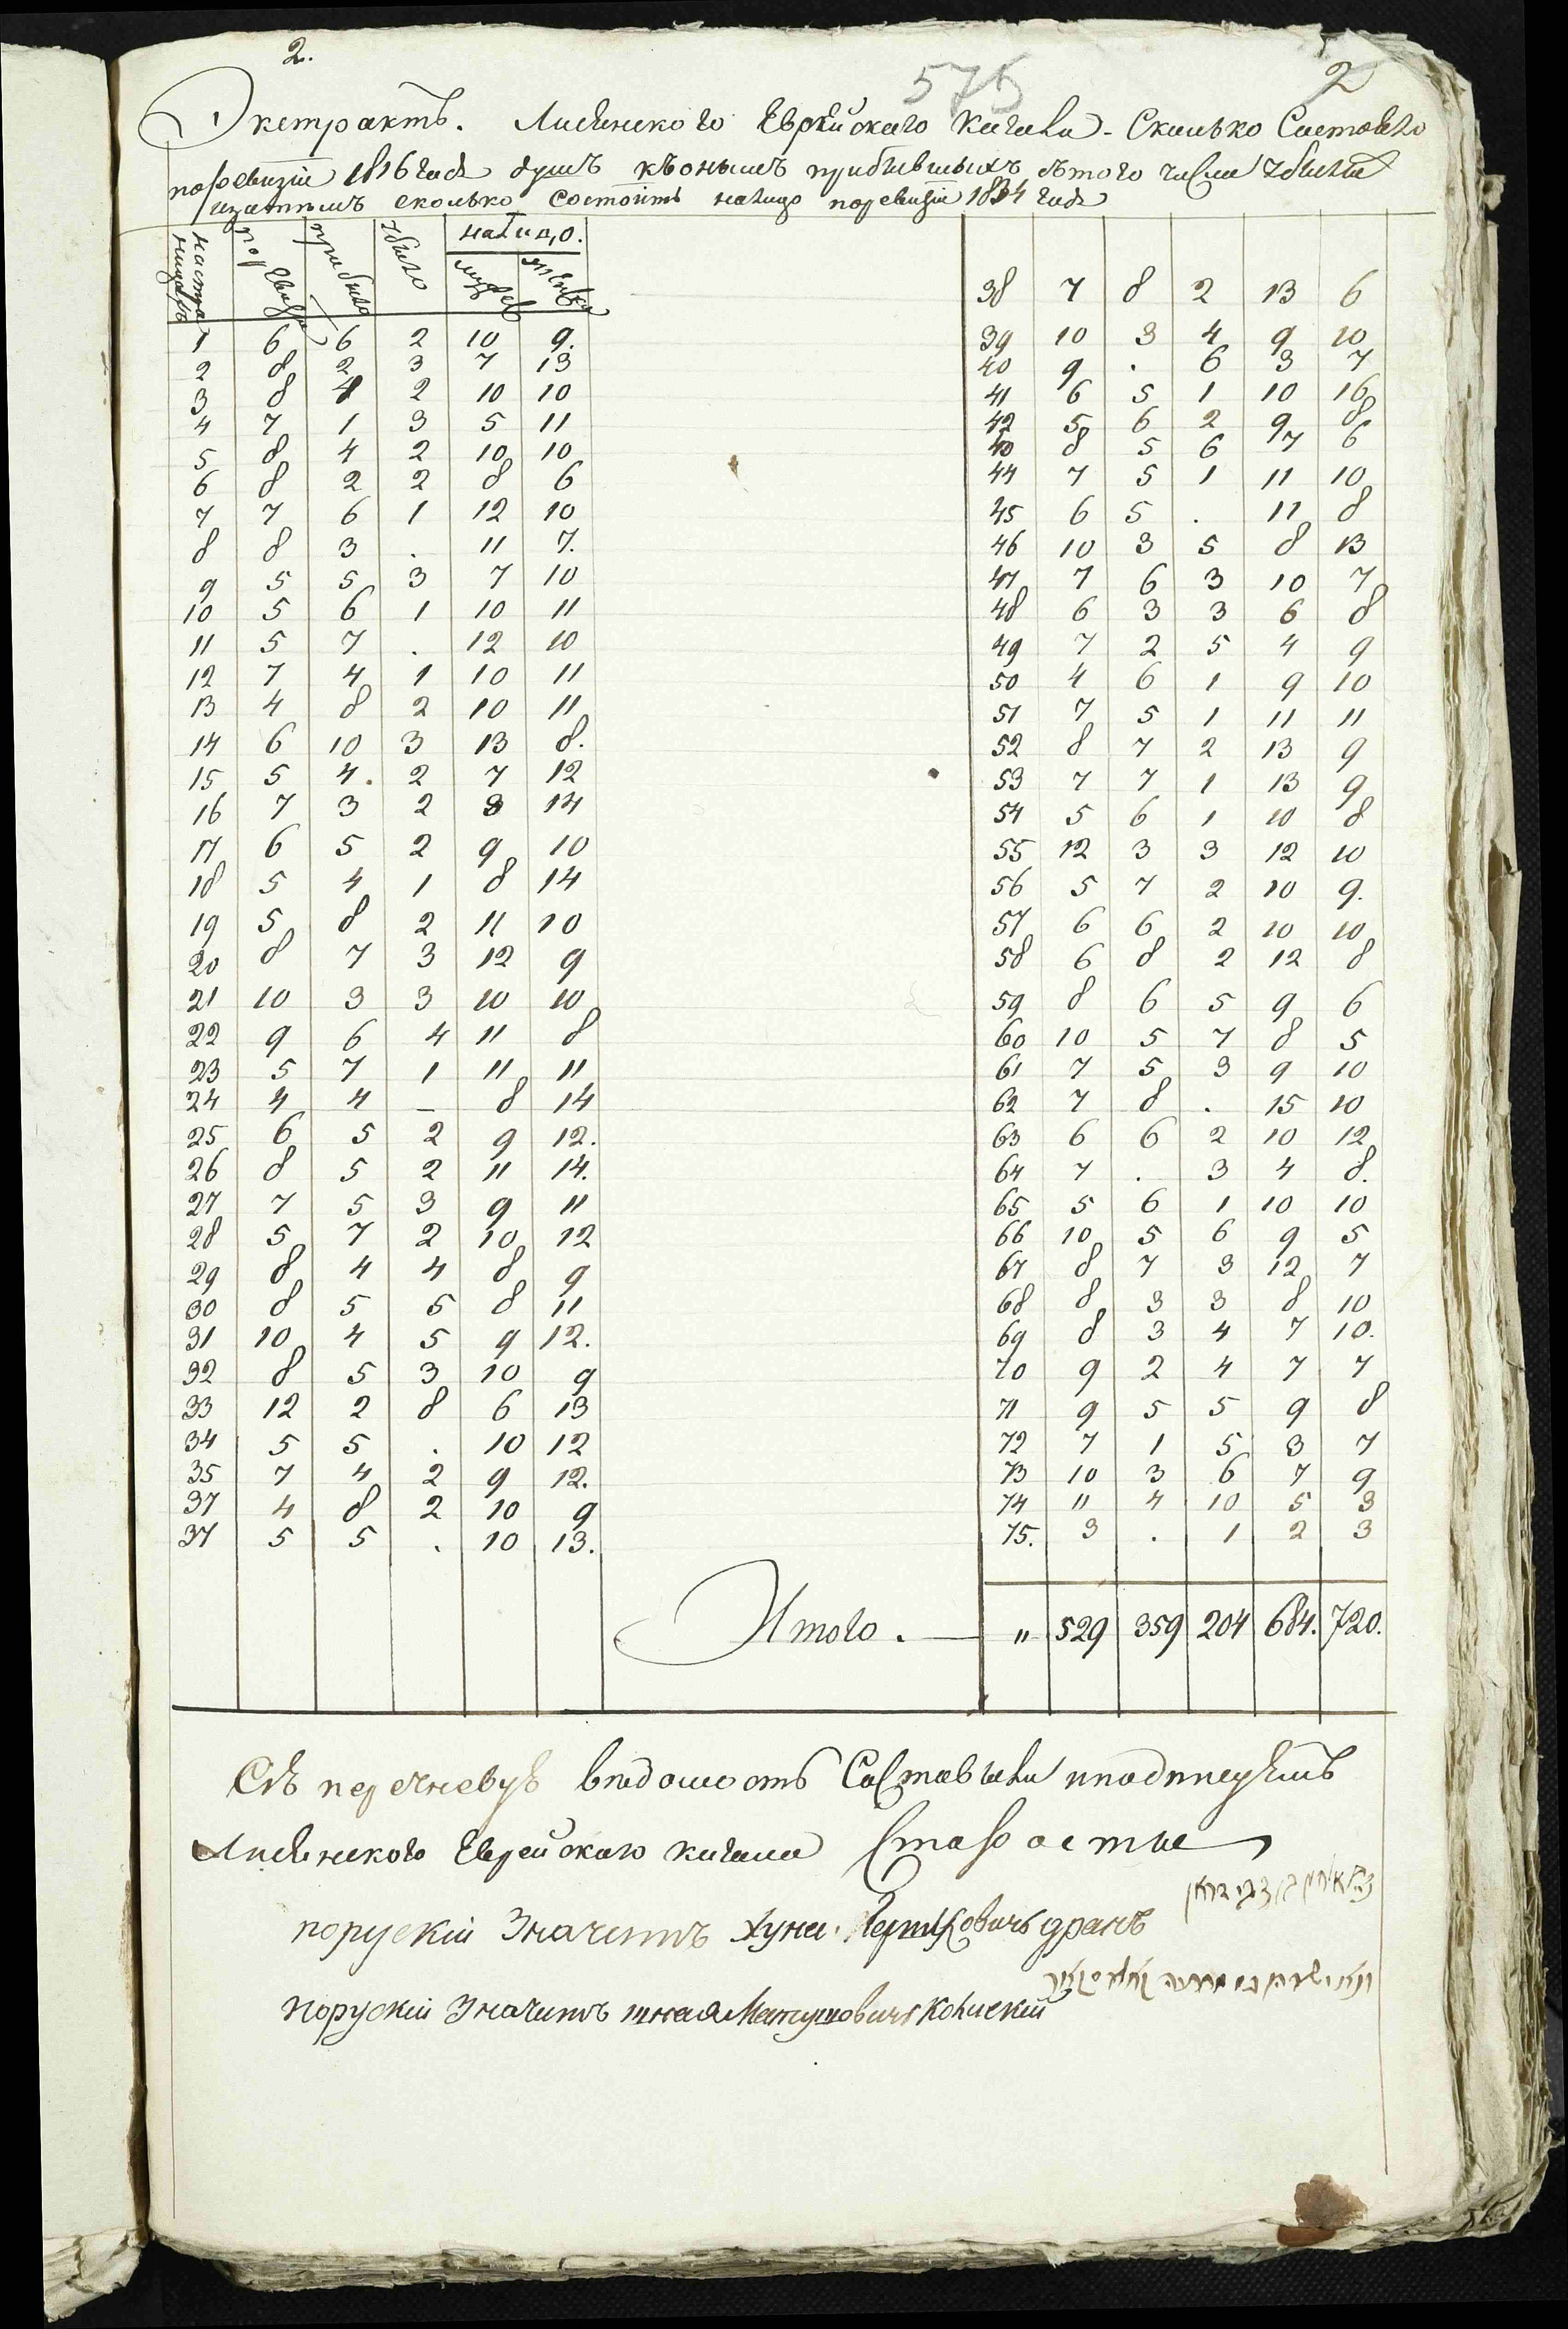 2.
576
2
Экстрактъ. Лисянского Еврейского Кагала - Сколько Состояло
поревизіи 1816 года душъ къонымъ прибывшыхъ сътого числа убыло
изатемъ сколько состоитъ налицо поревизіи 1834 года
настраницахъ | поревизіи | прибыло | убыло | налицо.
мужеск | женска
1 6 6 2 10 9.
2 8 2 3 7 13
3 8 4 2 10 10
4 7 1 3 5 11
5 8 4 2 10 10
6 8 2 2 8 6
7 7 6 1 12 10
8 8 3 . 11 7.
9 5 5 3 7 10
10 5 6 1 10 11
11 5 7 . 12 10
12 7 4 1 10 11
13 4 8 2 10 11
14 6 10 3 13 8.
15 5 4. 2 7 12
16 7 3 2 8 14
17 6 5 2 9 10
18 5 4 1 8 14
19 5 8 2 11 10
20 8 7 3 12 9
21 10 3 3 10 10
22 9 6 4 11 8
23 5 7 1 11 11
24 4 4 – 8 14
25 6 5 2 9 12.
26 8 5 2 11 14.
27 7 5 3 9 11
28 5 7 2 10 12
29 8 4 4 8 9
30 8 5 5 8 11
31 10 4 5 9 12.
32 8 5 3 10 9
33 12 2 8 6 13
34 5 5 . 10 12
35 7 4 2 9 12.
37 4 8 2 10 9
37 5 5 . 10 13.
38 7 8 2 13 6
39 10 3 4 9 10
40 9 . 6 3 7
41 6 5 1 10 16
42 5 6 2 9 8
40 8 5 6 7 6
44 7 5 1 11 10
45 6 5 . 11 8
46 10 3 5 8 13
47 7 6 3 10 7
48 6 3 3 6 8
49 7 2 5 4 9
50 4 6 1 9 10
51 7 5 1 11 11
52 8 7 2 13 9
53 7 7 1 13 9
54 5 6 1 10 8
55 12 3 3 12 10
56 5 7 2 10 9.
57 6 6 2 10 10
58 6 8 2 12 8
59 8 6 5 9 6
60 10 5 7 8 5
61 7 5 3 9 10
62 7 8 . 15 10
63 6 6 2 10 12
64 7 . 3 4 8.
65 5 6 1 10 10
66 10 5 6 9 5
67 8 7 3 12 7
68 8 3 3 8 10
69 8 3 4 7 10.
70 9 2 4 7 7
71 9 5 5 9 8
72 7 1 5 3 7
73 10 3 6 7 9
74 11 4 10 5 3
75. 3 . 1 2 3
Итого. — " 529 359 204 684. 720.
Сію перечневую вѣдомость Составили иподписуемъ
Лисянского Еврейского кагала Старосты
порускій Значитъ Хуна дранъ
порускій Значитъ шнея Матушовичъ Колиекій